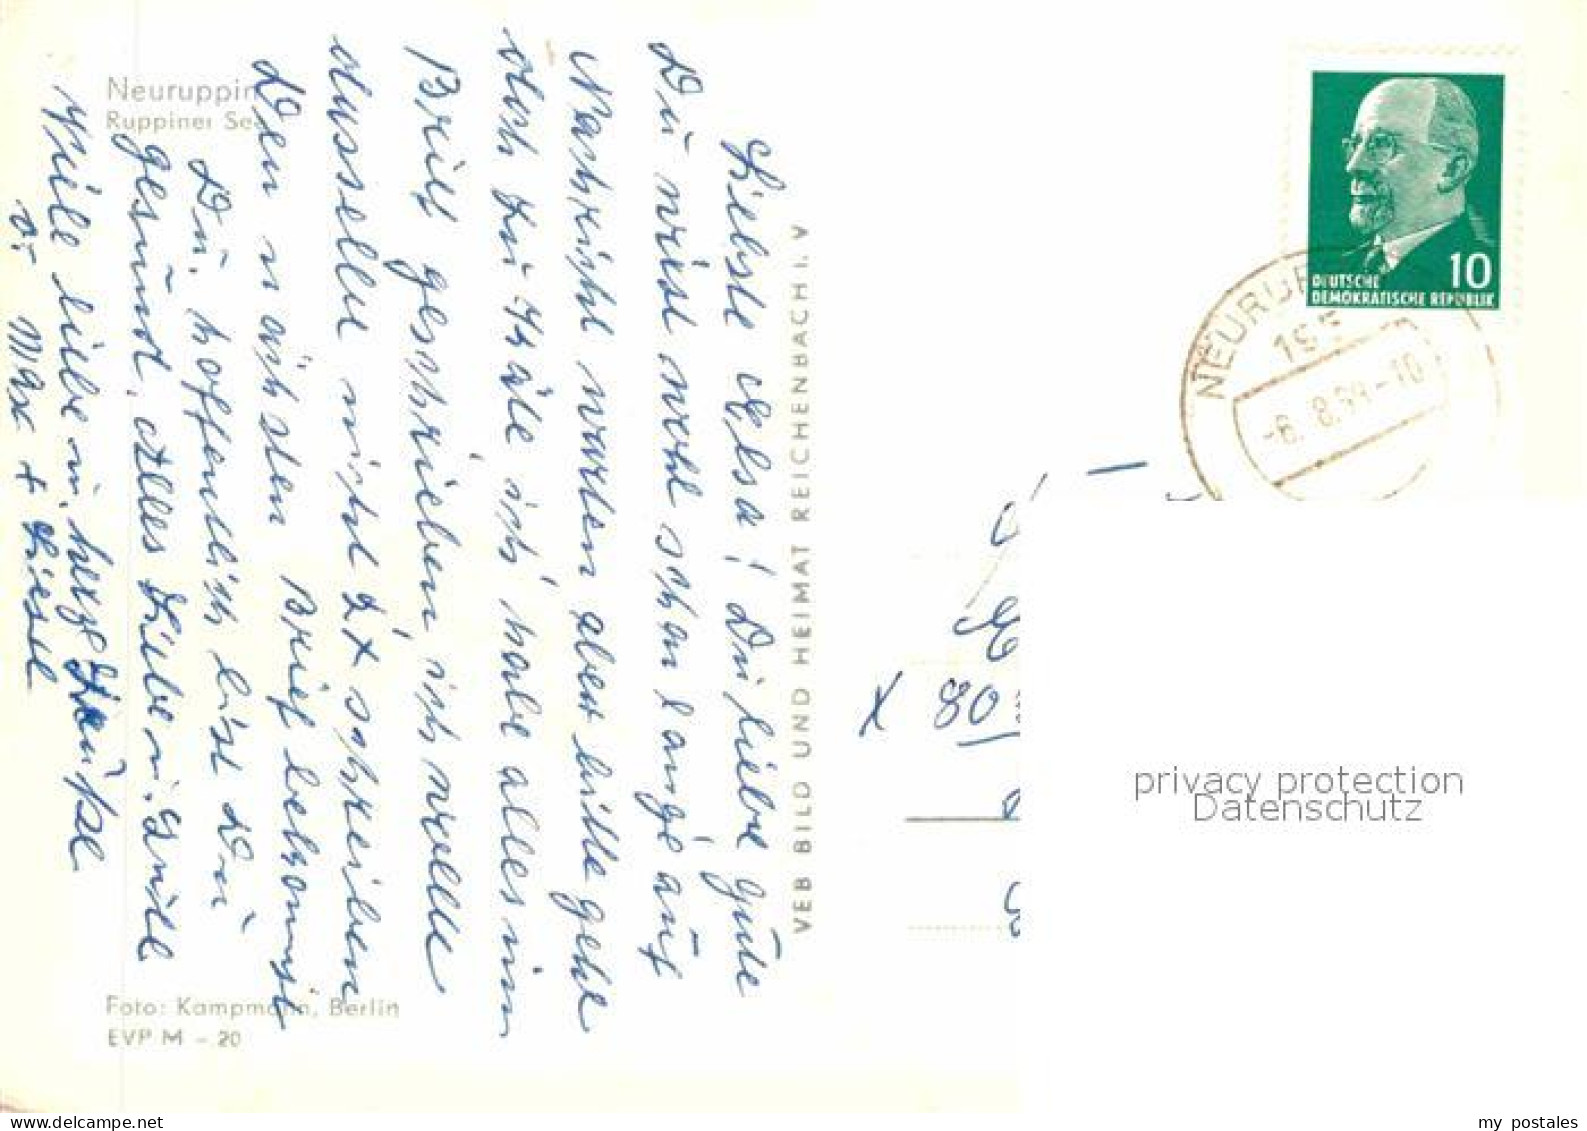 Neuruppin
Ruppiner See
Liebste Elsa! Du liebe gute
Du wirst wohl schon lange auf
Nachricht warten aber bitte gehe
doch zu Käte ich habe alles im
Brief geschrieben, ich wollte
dasselbe nicht 2x schreiben
Den nächsten Brief bekommst
Du, hoffentlich bist Du
gesund, alles Liebe u. Gute
Viele liebe u. herzl. Grüße
v. Max + Liesel
Foto: Kampmann, Berlin
EVP M - 20
VEB BILD UND HEIMAT REICHENBACH I. V
10
DEUTSCHE
DEMOKRATISCHE REPUBLIK
NEURUPPIN
195
X 80
privacy protection
Datenschutz
my postales